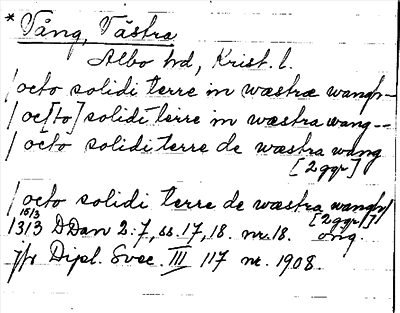 * Vång, Västra
Albo hd, Krist. l.
/ octo solidi terre in wæstræ wangh-
/ oc[to] solidi terre in wæstra wang--
/ octo solidi terre de wæstra wang
[2 ggr]
/ octo solidi terre de wæstra wangh/
[2 ggr/]
15/3
1313 DDan 2:7, ss. 17, 18. nr. 18. orig.
jfr Dipl. Svec. III 117 nr. 1908.